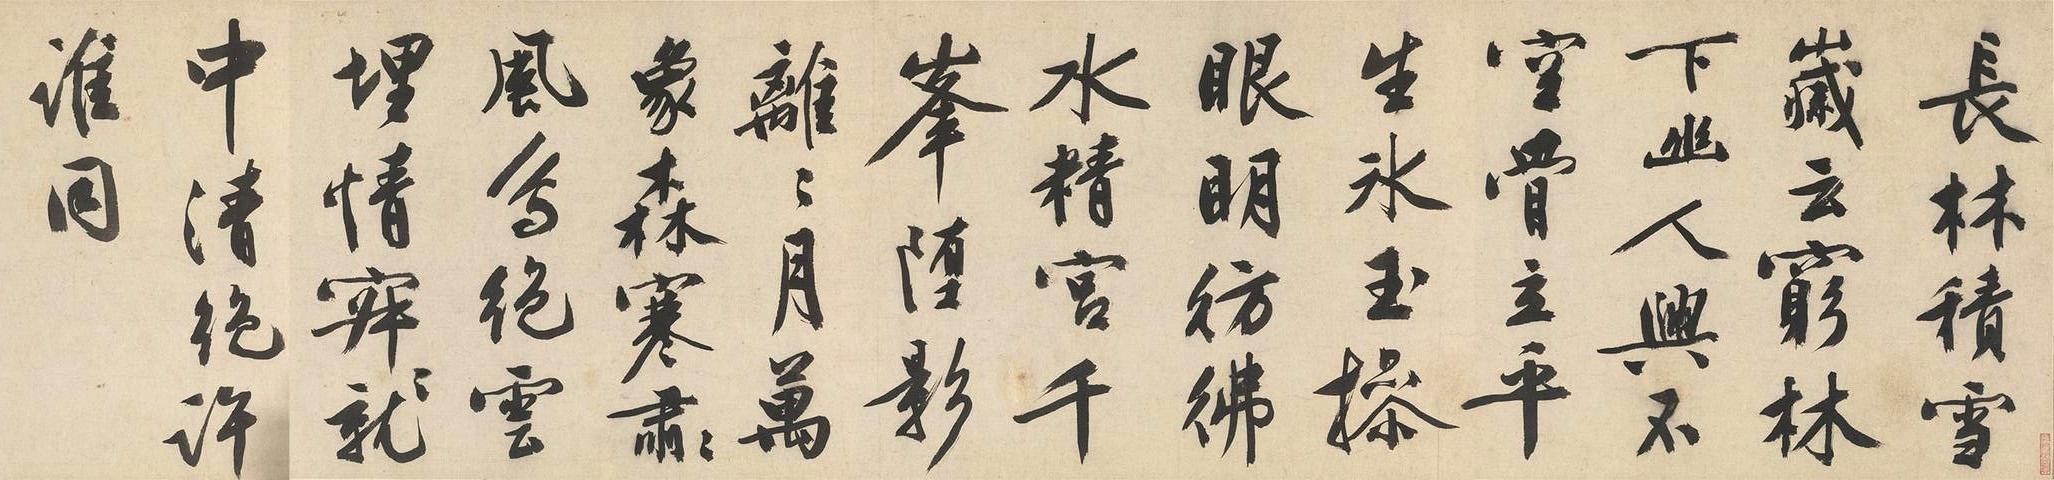 長林積雪
歲云窮林
下幽人興不
空骨立平
生氷玉操
眼明彷彿
水精宮千
峯堕影
離〻月萬
象森寒肅〻
風鳥絶雲
埋情寂〻就
中清絶許
誰同